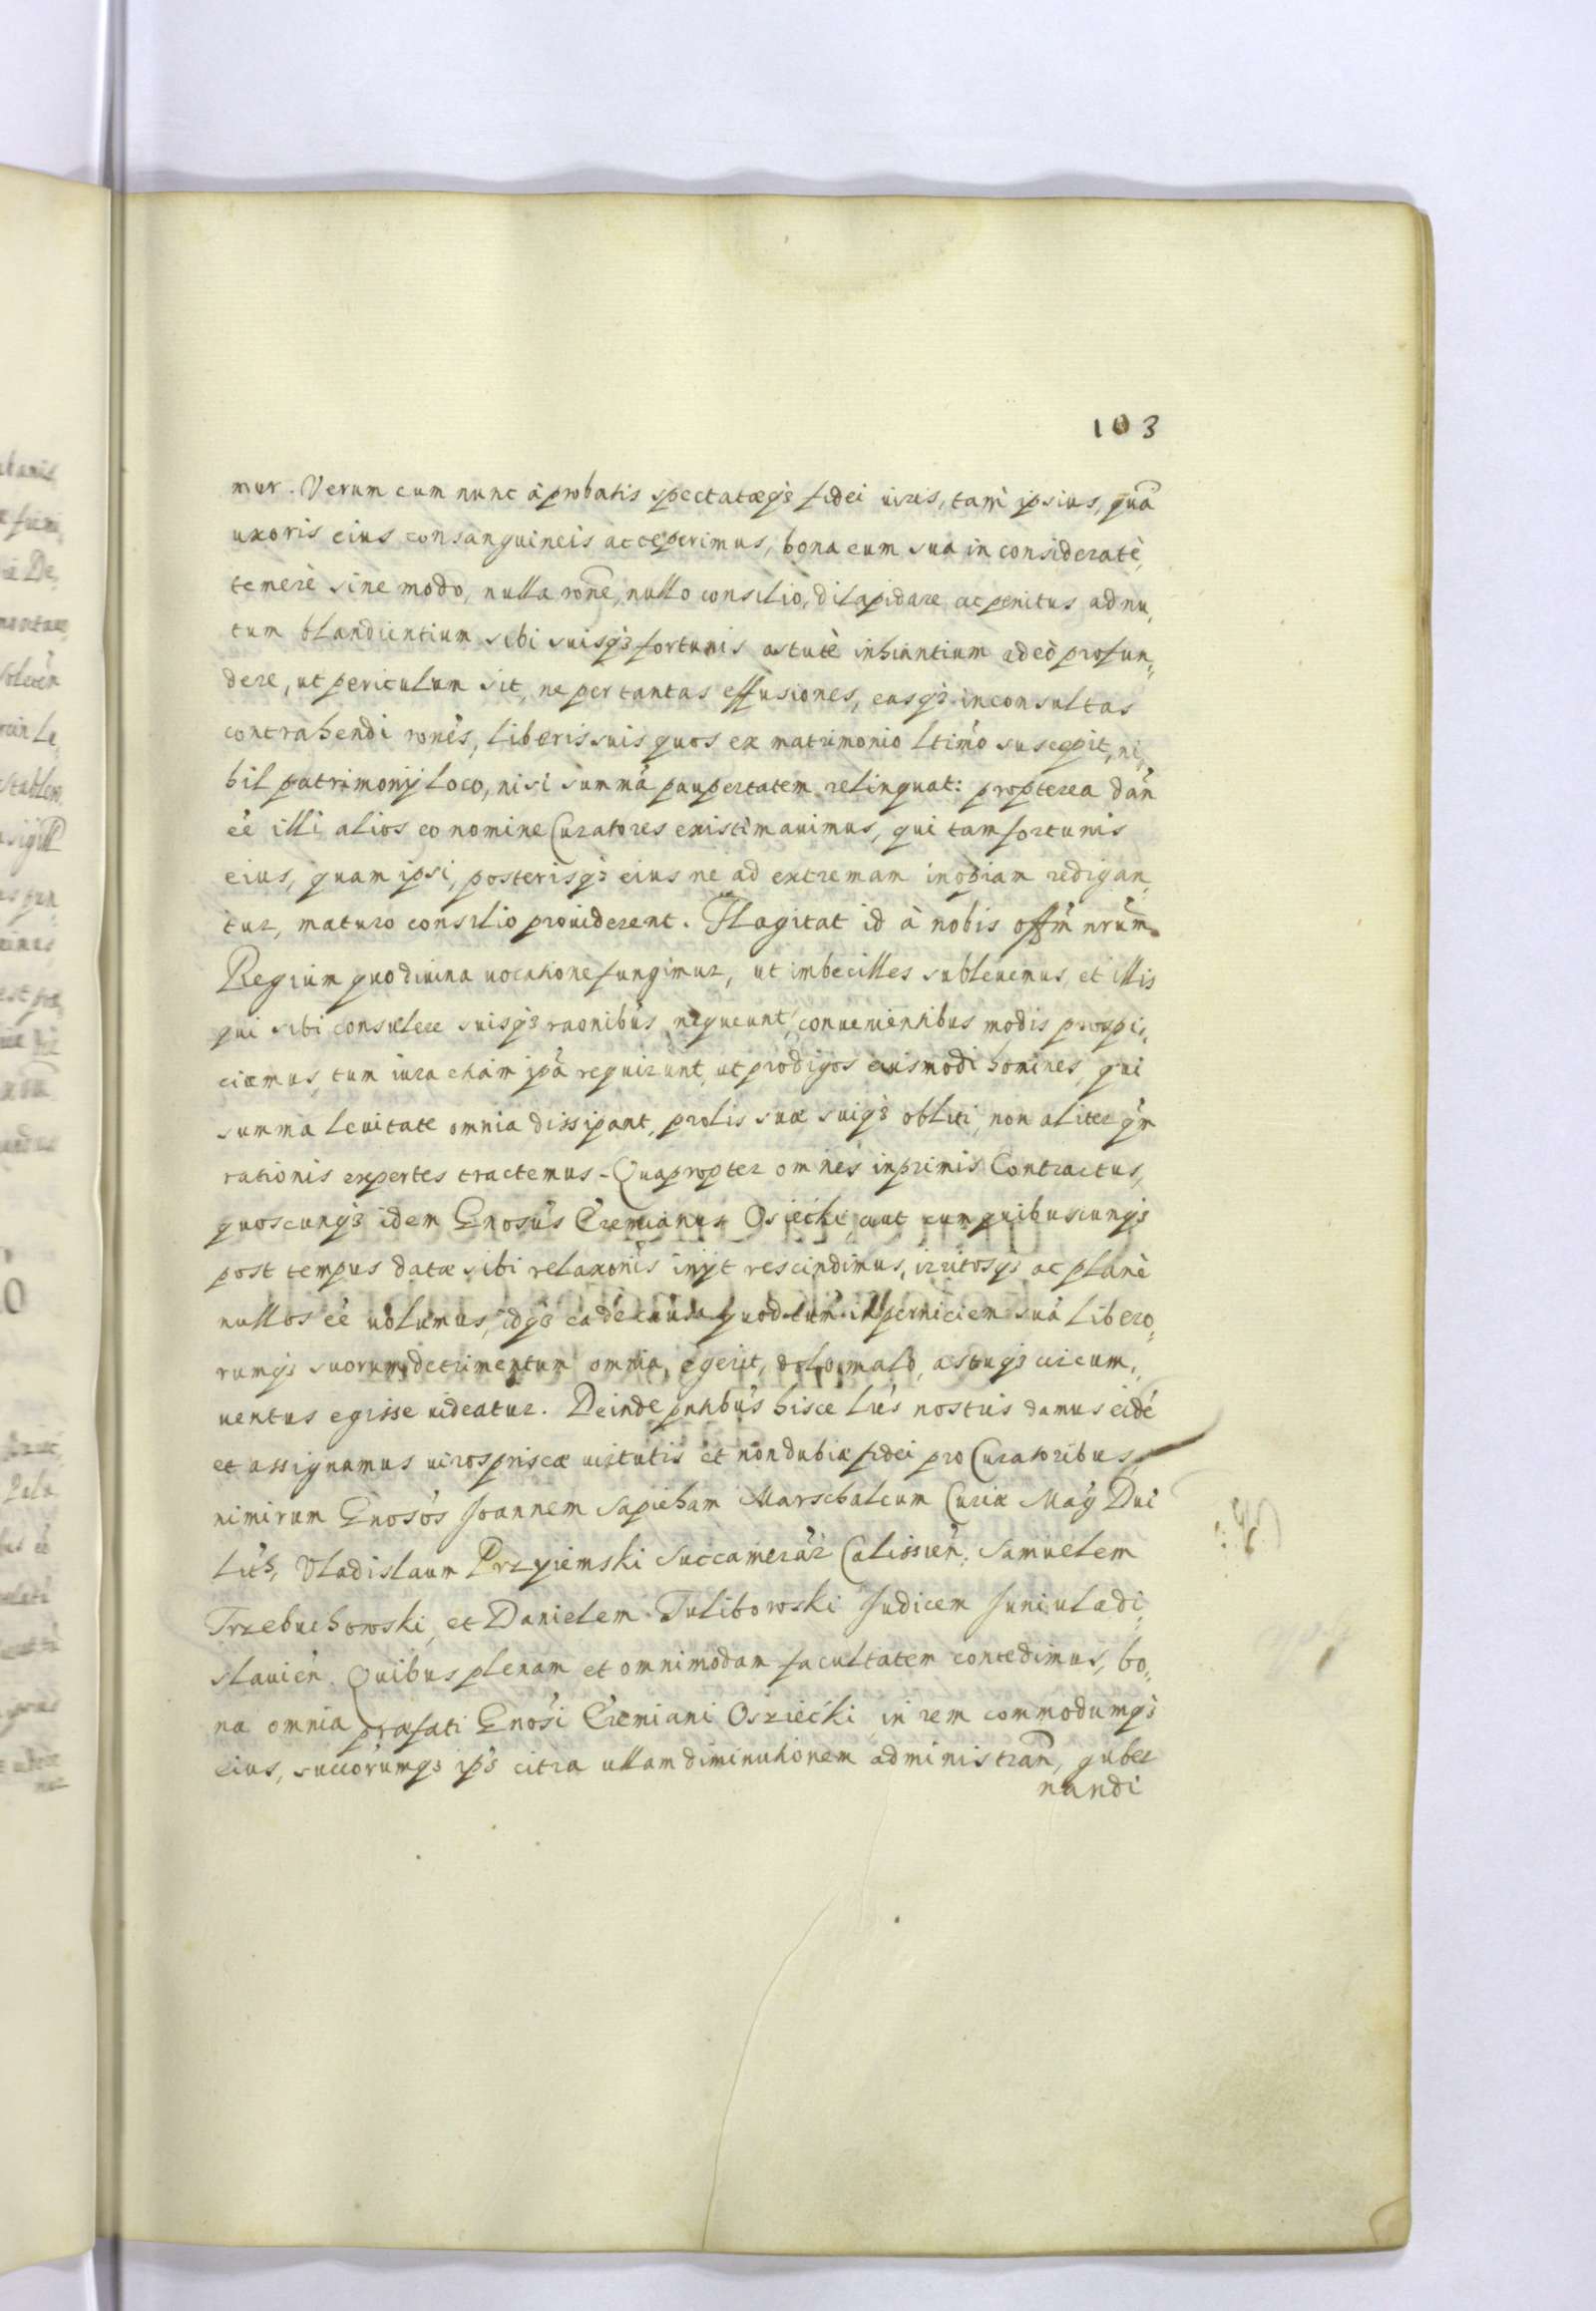 103
mur. Verum cum nunc à probatis spectatæq́ꝫ fidei uiris, tam̀ ipsius, quā
uxoris eius consanguineis acceperimus, bona eum sua in consideratè,
temerè sine modo, nulla rōne, nullo consilio, dilapidare ac penitus ad nu„
tum blandientium sibi suisq́ꝫ fortunis astutè inhiantium adeò profun„
dere, ut periculum sit, ne per tantas effusiones, easq́ꝫ inconsultas
contrahendi ronés, liberis suis quos ex matrimonio ltimó suscepit, ni„
hil patrimonij loco, nisi summá paupertatem relinquat: propterea dań
eé illi alios eo nomine Curatores existimauimus, qui tam fortunis
eius, quam ipsi, posterisq́ꝫ eius ne ad extremam inopiam redigan„
tur, maturo consilio prouiderent. Flagitat id à nobis offm̄ nrūm
Regium quo diuina uocatione fungimur, ut imbecilles subleuemus, et illis
qui sibi consulere suisq́ꝫ raonibús nequeunt, conuenientibus modis prospi„
ciamus, tum iura etiám ipá requirunt, ut prodigos eiusmodi homines, qui
summa leuitate omnia dissipant, prolis suæ suiq́ꝫ obliti, non aliter q́m
rationis expertes tractemus. Quapropter omnes inprimis Contractus,
quoscunq́ꝫ idem Gnosús Eremianus Osiecki, cum quibuscunq́ꝫ
post tempus datæ sibi relaxonís inijt rescindimus, irritosq́ꝫ ac planè
nullos eé uolumus, idq́ꝫ eadé causa quod cum in perniciem suá libero„
rumq́ꝫ suorum detrimentum omnia egerit, dolo malo, astuq́ꝫ circum„
uentus egisse uideatur. Deinde pntibús hisce lrís nostris damus eidé
et assignamus uiros priscæ uirtutis et non dubiæ fidei pro Curatoribus,
nimirum Gnosós Joannem Sapieham Marschalcum Curiæ Mag̃ Dui
Litḣ, Vladislaum Przyiemski Succamerár Calissień, Samuelem
Trzebuchowski, et Danielem Tulibowski Judicem Juniuladi„
slauień. Quibus plenam et omnimodam facultatem concedimus, bo„
na omnia præfati Gnosí Eremiani Osziećki in rem commodumq́ꝫ
eius, succorúmqꝫ ipś citra ullam diminutionem administran̄, guber
nandi